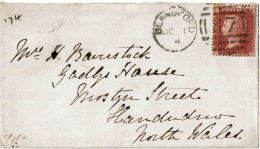 '74
BLANDFORD
OC 1
Mrs H. Baverstock
Gadlys House
Mostyn Street
Llandudno
North Wales